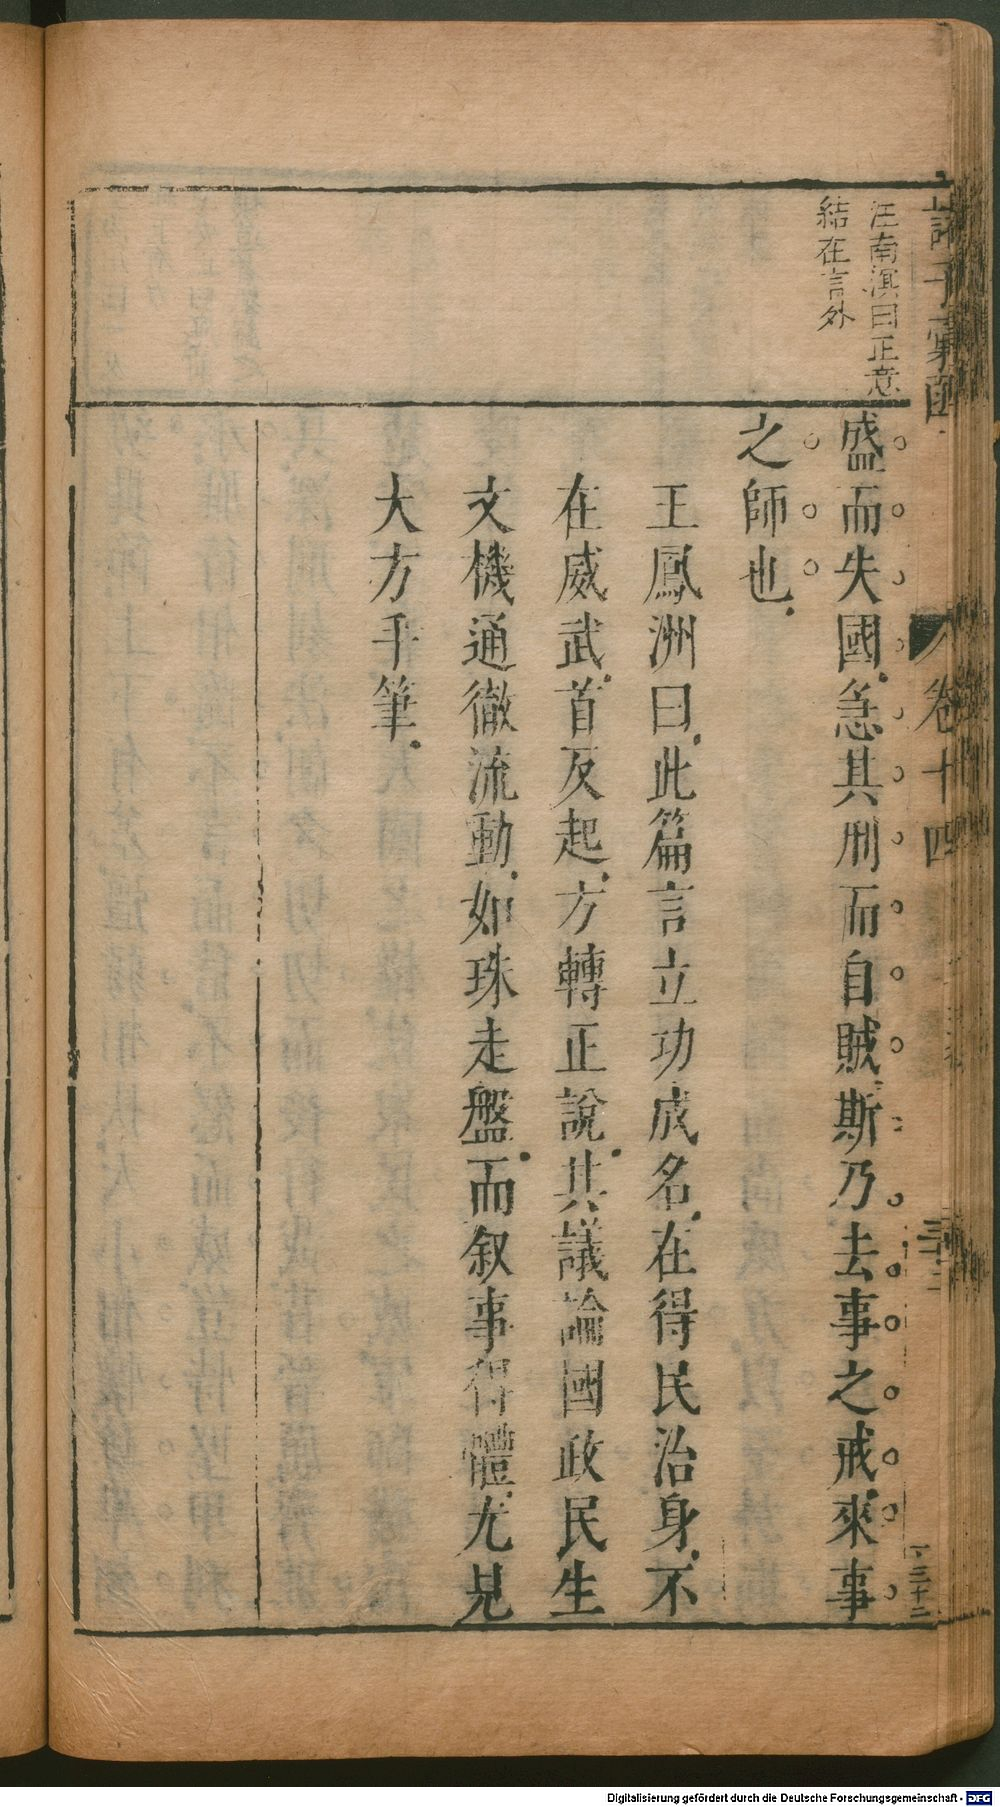 諸子彙函
卷十四
三十二
汪南溟曰正意
結在言外
盛而失國急其刑而自賊斯乃去事之戒來事
之師也
王鳳洲曰此篇言立功成名在得民治身不
在威武首反起方轉正說其議論國政民生
文機通徹流動如珠走盤而叙事得體尤見
大方手筆
Digitalisierung gefördert durch die Deutsche Forschungsgemeinschaft - DFG